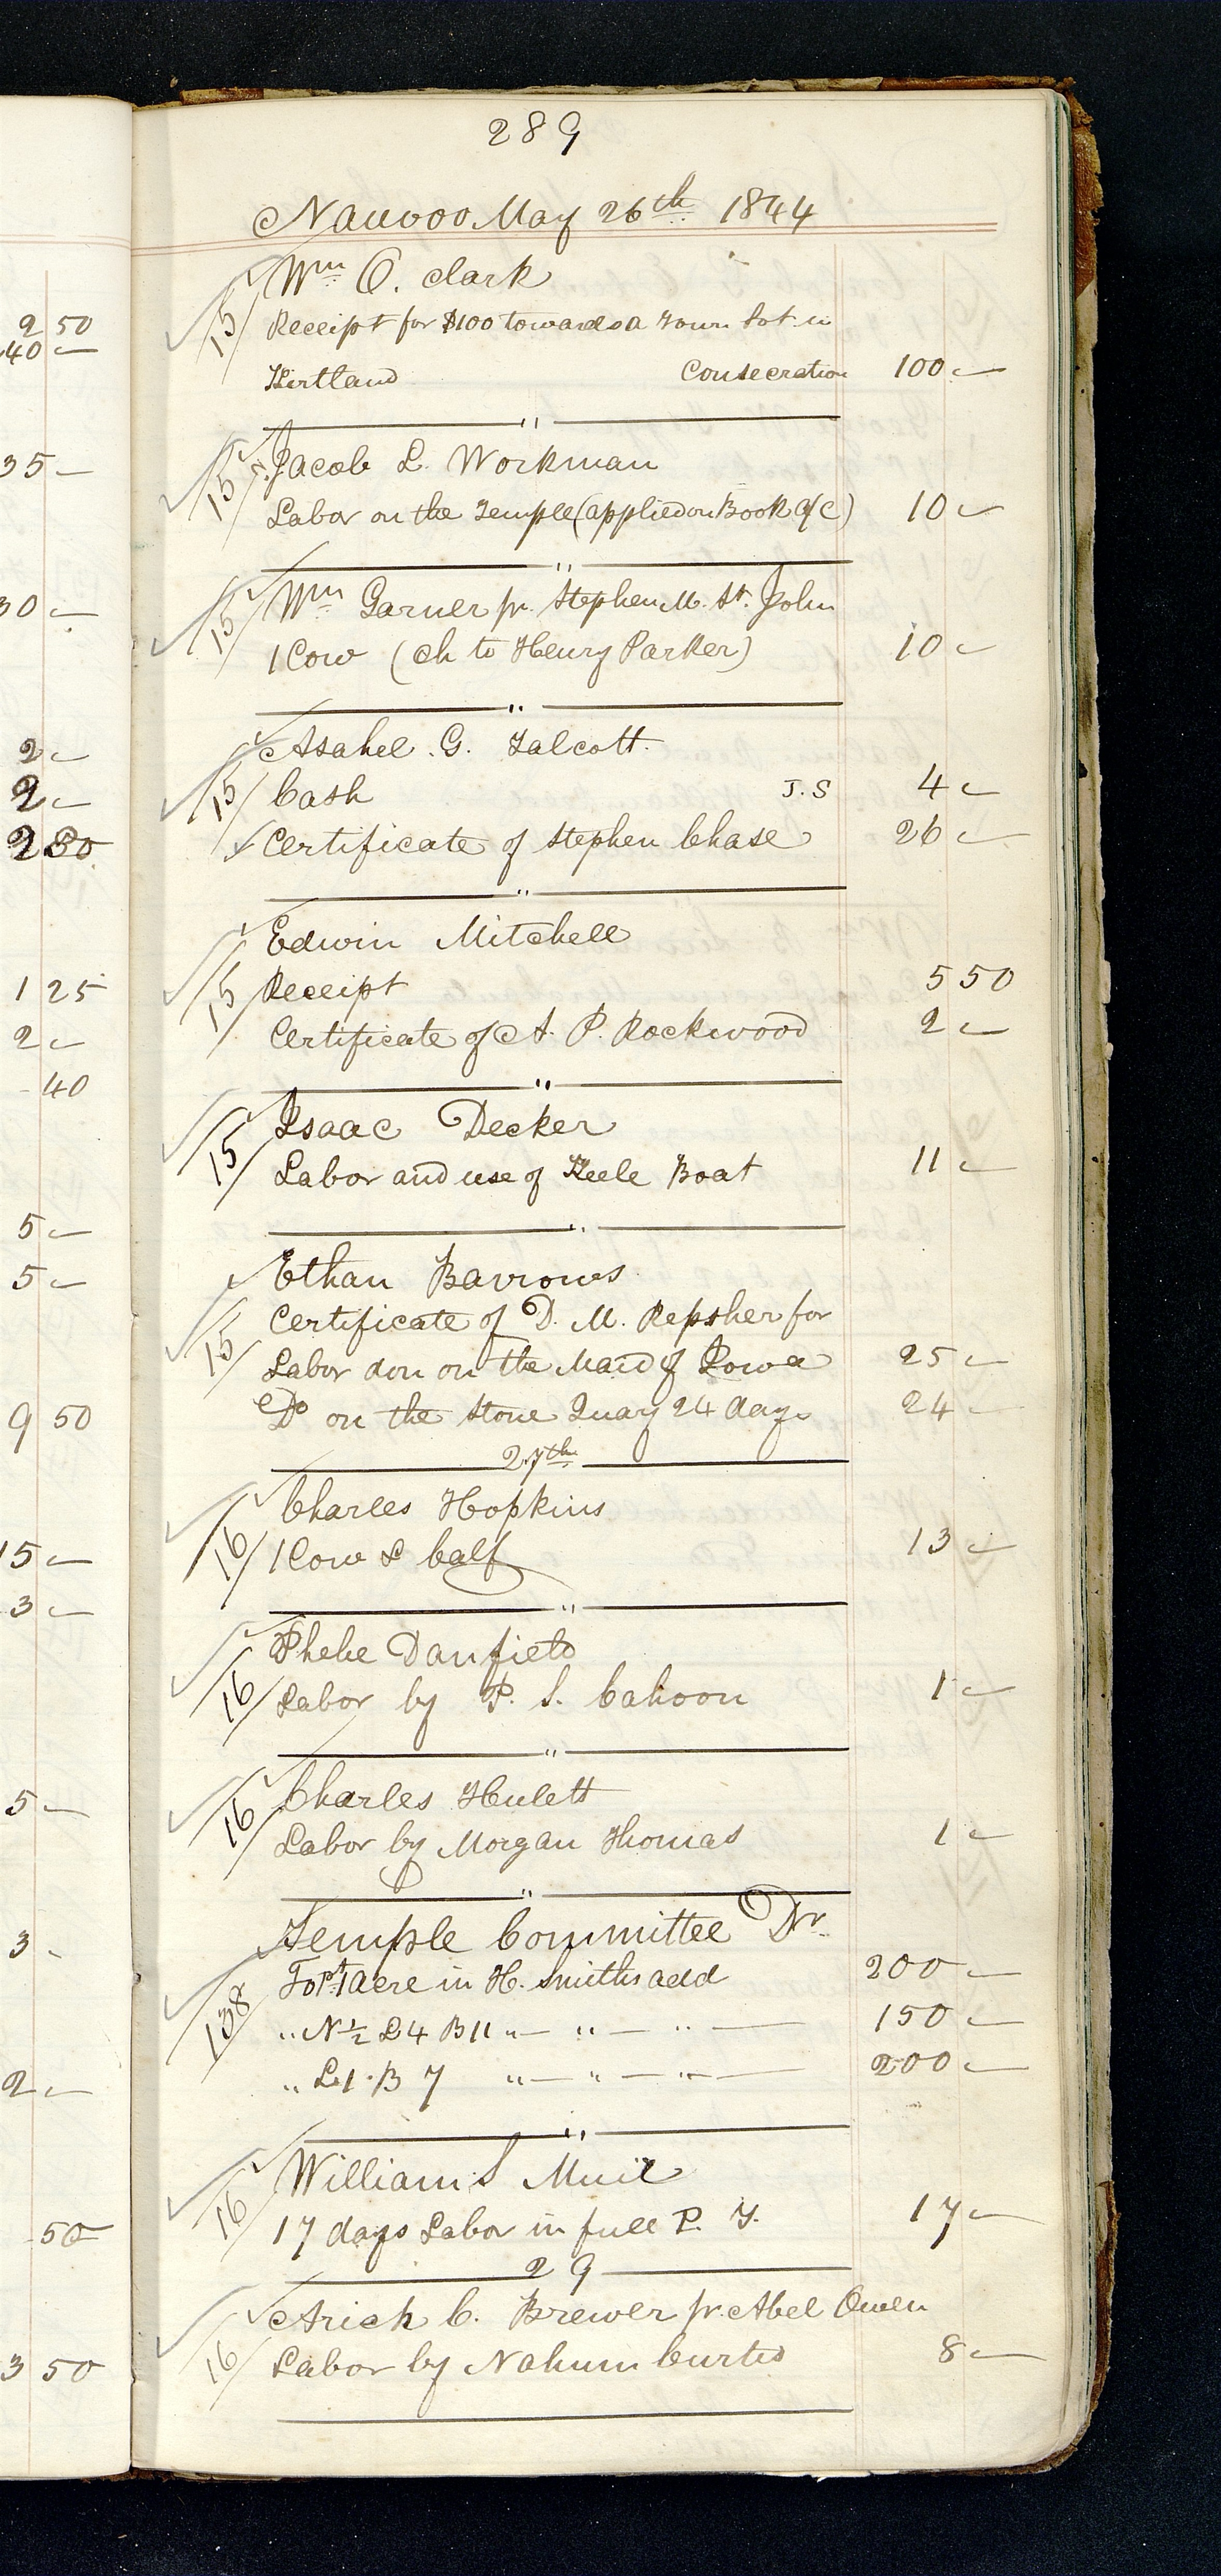 289
Nauvoo May 26th 1844
Wm O. Clark
15 Receipt for $100 towards a Town Lot in
Kirtland Consecration 100 -
"
Jacob L. Workman
15 Labor on the Temple (applied on Book a/c) 10 -
"
Wm Garner pr. Stephen M. St. John
15 1 Cow (ch to Henry Parker) 10 -
"
Asahel. G. Talcott.
15 Cash J. S 4 -
Certificate of Stephen Chase 26 -
"
Edwin Mitchell
15 Receipt 5 50
Certificate of A. P. Rockwood 2 -
"
Isaac Decker
15 Labor and use of Keele Boat 11 -
"
Ethan Barrows
Certificate of D. M. Repsher for
15 Labor don on the Maid of Iowa 25 -
Do on the Stone Quay 24 days 24 -
27th
Charles Hopkins
16 1 Cow & Calf 13 -
"
Phebe Danfield
16 Labor by P. S. Cahoon 1 -
"
Charles Hulett
16 Labor by Morgan Thomas 1 -
"
Temple Committee Dr.
138 To pt 1 acre in H. Smiths add 200 -
" N 1/2 L 4 B 11 " - " - " - 150 -
" L. 1. B 7 " - " - " - 200 -
"
William S Muir
16 17 days Labor in full P. T. 17 -
29
Ariah C. Brewer pr. Abel Owen
16 Labor by Nahum Curtis 8 -
2 50
40 -
35 -
30 -
2 -
2 -
2 80
1 25
2 -
- 40
5 -
5 -
9 50
15 -
3 -
5 -
3 -
2 -
- 50
3 50